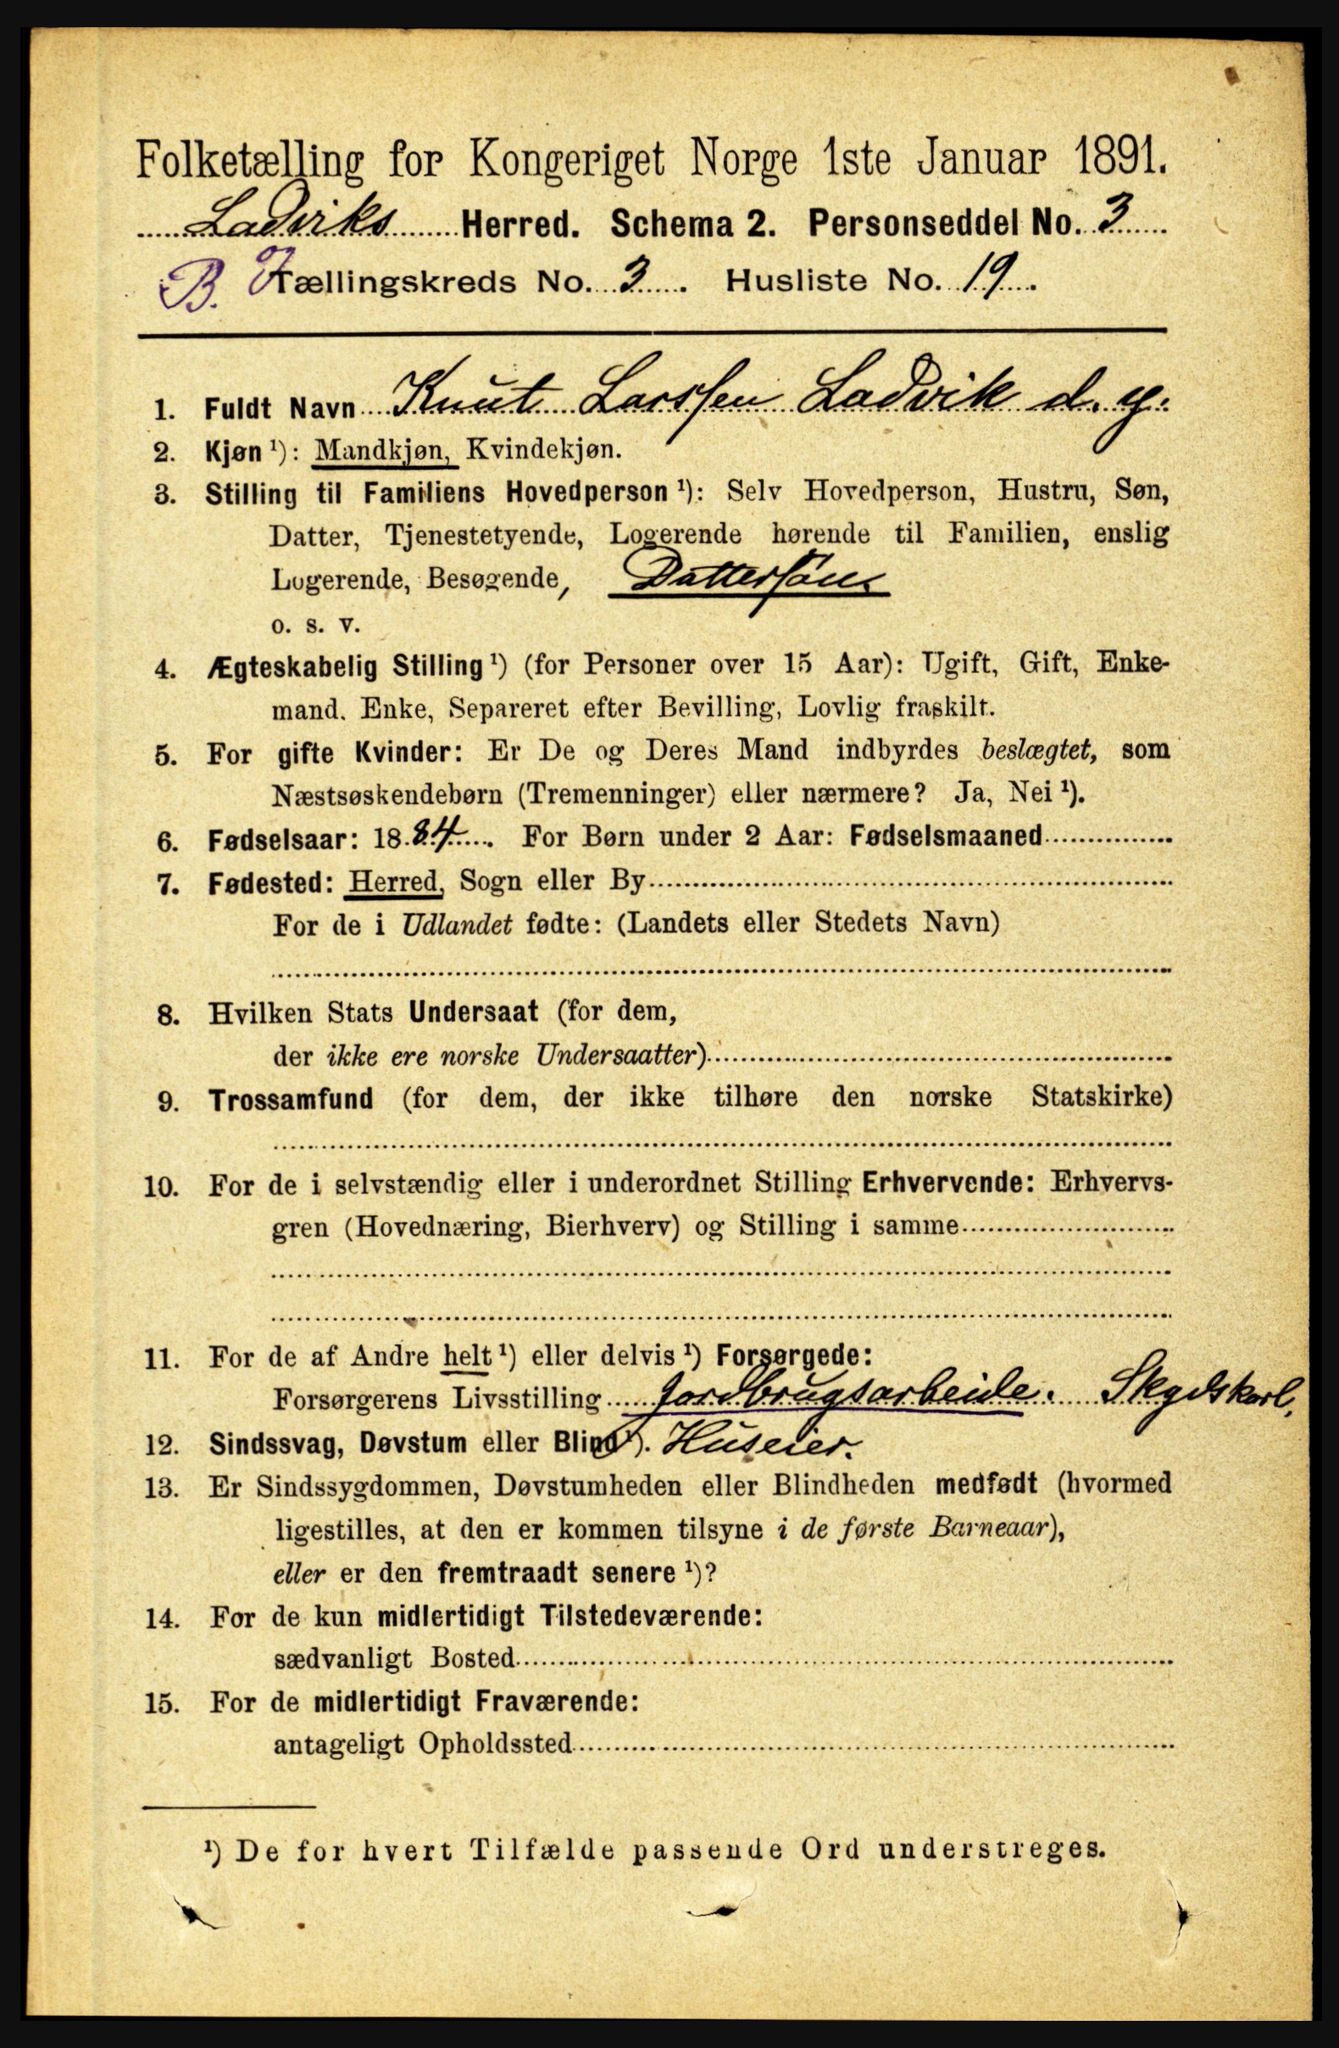 Folketælling for Kongeriget Norge 1ste Januar 1891.
Ladviks Herred. Schema 2. Personseddel No. 3
B. Tællingskreds No. 3. Husliste No. 19.
1. Fuldt Navn Knut Larssen Ladvik d. y.
2. Kjøn ¹): Mandkjøn, Kvindekjøn.
3. Stilling til Familiens Hovedperson ¹): Selv Hovedperson, Hustru, Søn,
Datter, Tjenestetyende, Logerende hørende til Familien, enslig
Logerende, Besøgende, Dattersøn
o. s. v.
4. Ægteskabelig Stilling ¹) (for Personer over 15 Aar): Ugift, Gift, Enke-
mand. Enke, Separeret efter Bevilling, Lovlig fraskilt.
5. For gifte Kvinder: Er De og Deres Mand indbyrdes beslægtet, som
Næstsøskendebørn (Tremenninger) eller nærmere? Ja, Nei ¹).
6. Fødselsaar: 1884. For Børn under 2 Aar: Fødselsmaaned
7. Fødested: Herred, Sogn eller By
For de i Udlandet fødte: (Landets eller Stedets Navn)
8. Hvilken Stats Undersaat (for dem,
der ikke ere norske Undersaatter)
9. Trossamfund (for dem, der ikke tilhøre den norske Statskirke)
10. For de i selvstændig eller i underordnet Stilling Erhvervende: Erhvervs-
gren (Hovednæring, Bierhverv) og Stilling i samme
11. For de af Andre helt ¹) eller delvis ¹) Forsørgede:
Forsørgerens Livsstilling Jordbrugsarbeide. Skydskarl,
12. Sindssvag, Døvstum eller Blind ¹). Huseier.
13. Er Sindssygdommen, Døvstumheden eller Blindheden medfødt (hvormed
ligestilles, at den er kommen tilsyne i de første Barneaar),
eller er den fremtraadt senere ¹)?
14. For de kun midlertidigt Tilstedeværende:
sædvanligt Bosted
15. For de midlertidigt Fraværende:
antageligt Opholdssted
¹) De for hvert Tilfælde passende Ord understreges.